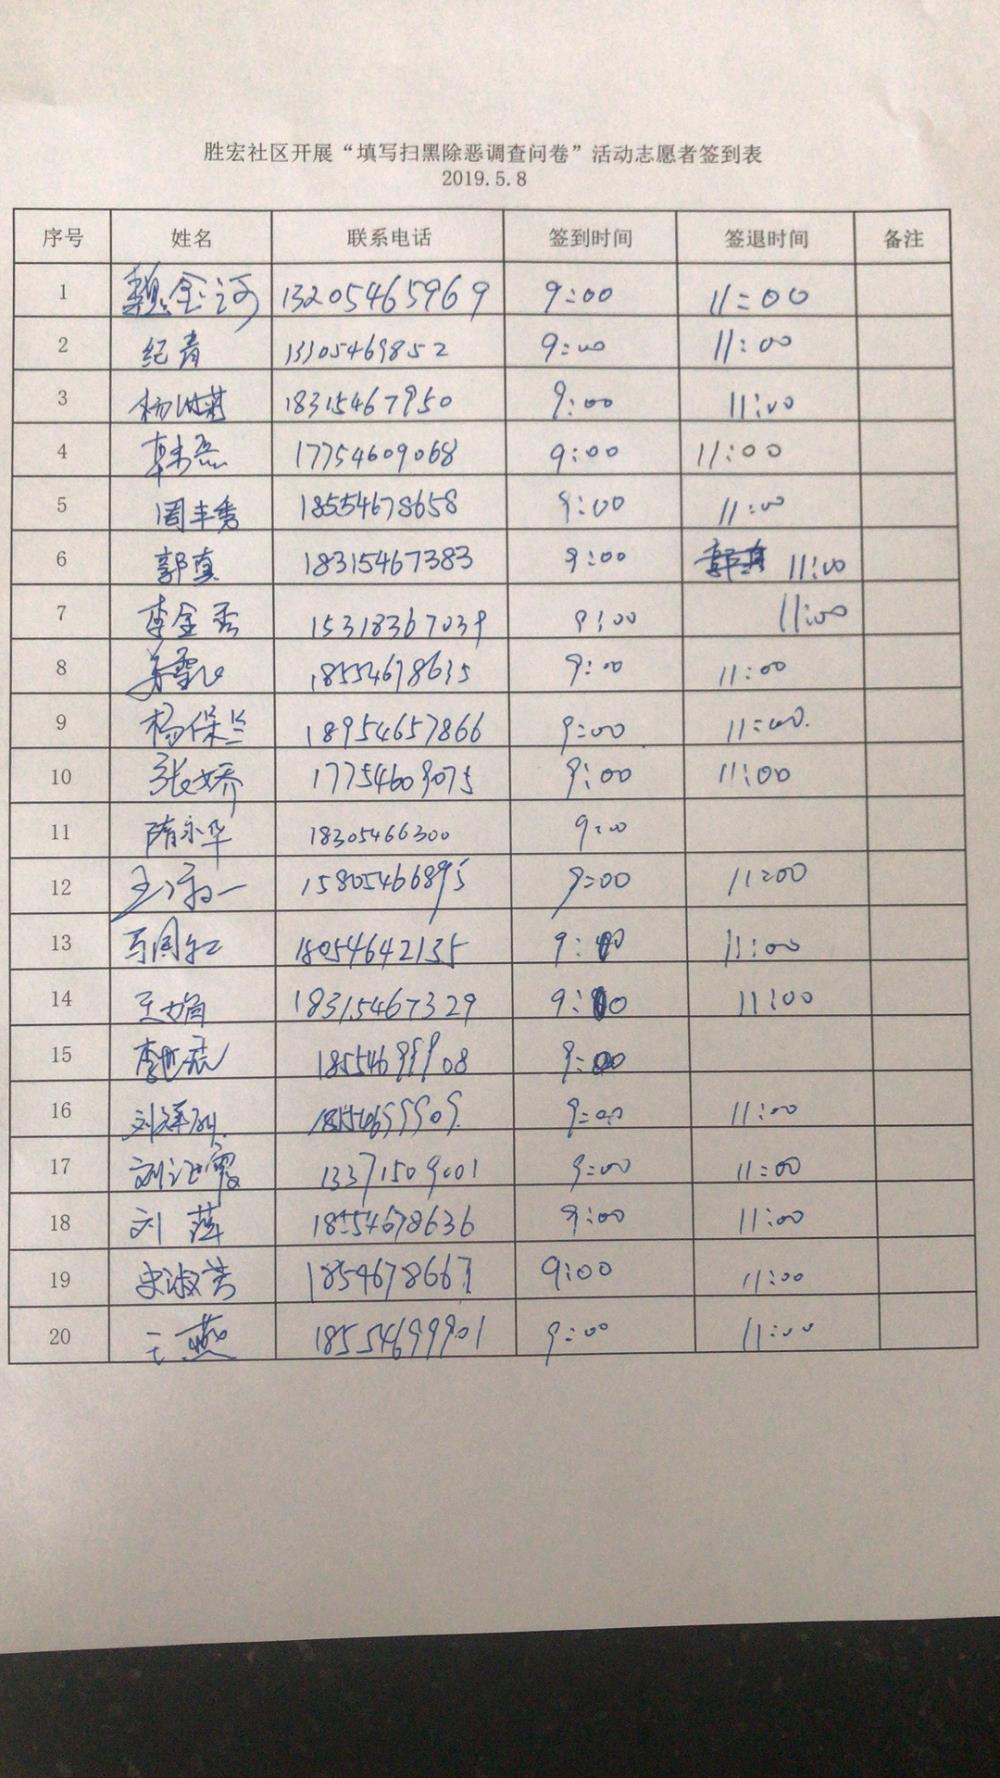 胜宏社区开展“填写扫黑除恶调查问卷”活动志愿者签到表
2019.5.8
序号 姓名 联系电话 签到时间 签退时间 备注
1 魏金河 13205465969 9:00 11:00
2 纪青 13105469852 9:00 11:00
3 18315467950 9:00 11:00
4 17754609068 9:00 11:00
5 周丰秀 18554678658 9:00 11:00
6 郭真 18315467383 9:00 11:00
7 李金秀 15318367039 9:00 11:00
8 18554678635 9:00 11:00
9 杨保兰 18954657866 9:00 11:00
10 张娇 17754609075 9:00 11:00
11 隋永华 18305466300 9:00
12 15805466895 9:00 11:00
13 18054642135 9:00 11:00
14 王娟 18315467329 9:00 11:00
15 18554699908 9:00
16 18554699909 9:00 11:00
17 13371509001 9:00 11:00
18 刘萍 18554678636 9:00 11:00
19 史淑芳 1854678667 9:00 11:00
20 王燕 18554699901 9:00 11:00